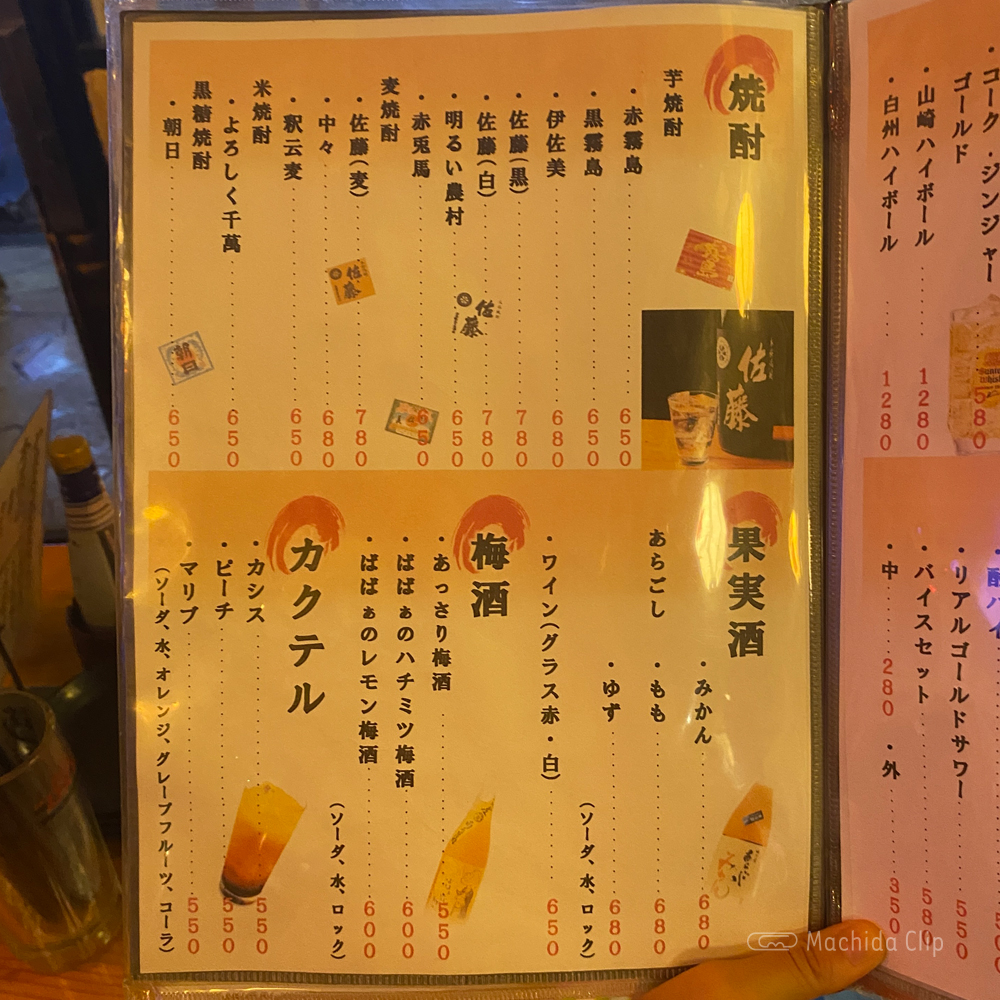 コーク・ジンジャー
ゴールド
580
・山崎ハイボール 1280
・白州ハイボール 1280
・リアルゴールドサワー 550
・バイスセット 580
・中 280 ・外 350
焼酎
芋焼酎
・赤霧島 650
・黒霧島 650
・伊佐美 680
・佐藤(黒) 780
・佐藤(白) 780
・明るい農村 650
・赤兎馬 650
麦焼酎
・佐藤(麦) 780
・中々 680
・釈云麦 650
米焼酎
・よろしく千萬 650
黒糖焼酎
・朝日 650
佐藤
佐藤
佐藤
朝日
果実酒
あらごし
・みかん 680
・もも 680
・ゆず 680
(ソーダ、水、ロック)
・ワイン(グラス赤・白) 650
梅酒
・あっさり梅酒 550
・ばばぁのハチミツ梅酒 600
・ばばぁのレモン梅酒 600
(ソーダ、水、ロック)
カクテル
・カシス 550
・ピーチ 550
・マリブ 550
(ソーダ、水、オレンジ、グレープフルーツ、コーラ)
Machida Clip